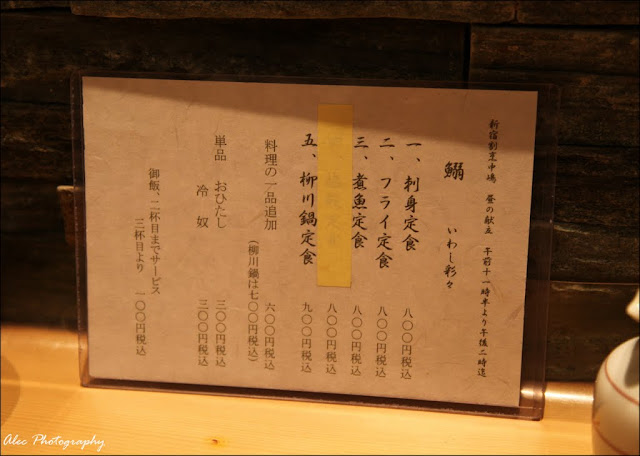 新宿割烹中嶋　昼の献立　午前十一時半より午後二時迄
鰯　いわし彩々
一、刺身定食　八〇〇円税込
二、フライ定食　八〇〇円税込
三、煮魚定食　八〇〇円税込
八〇〇円税込
五、柳川鍋定食　九〇〇円税込
料理の一品追加　六〇〇円税込
（柳川鍋は七〇〇円税込）
単品　おひたし　三〇〇円税込
冷奴　三〇〇円税込
御飯、二杯目までサービス
三杯目より　一〇〇円税込
Alec Photography